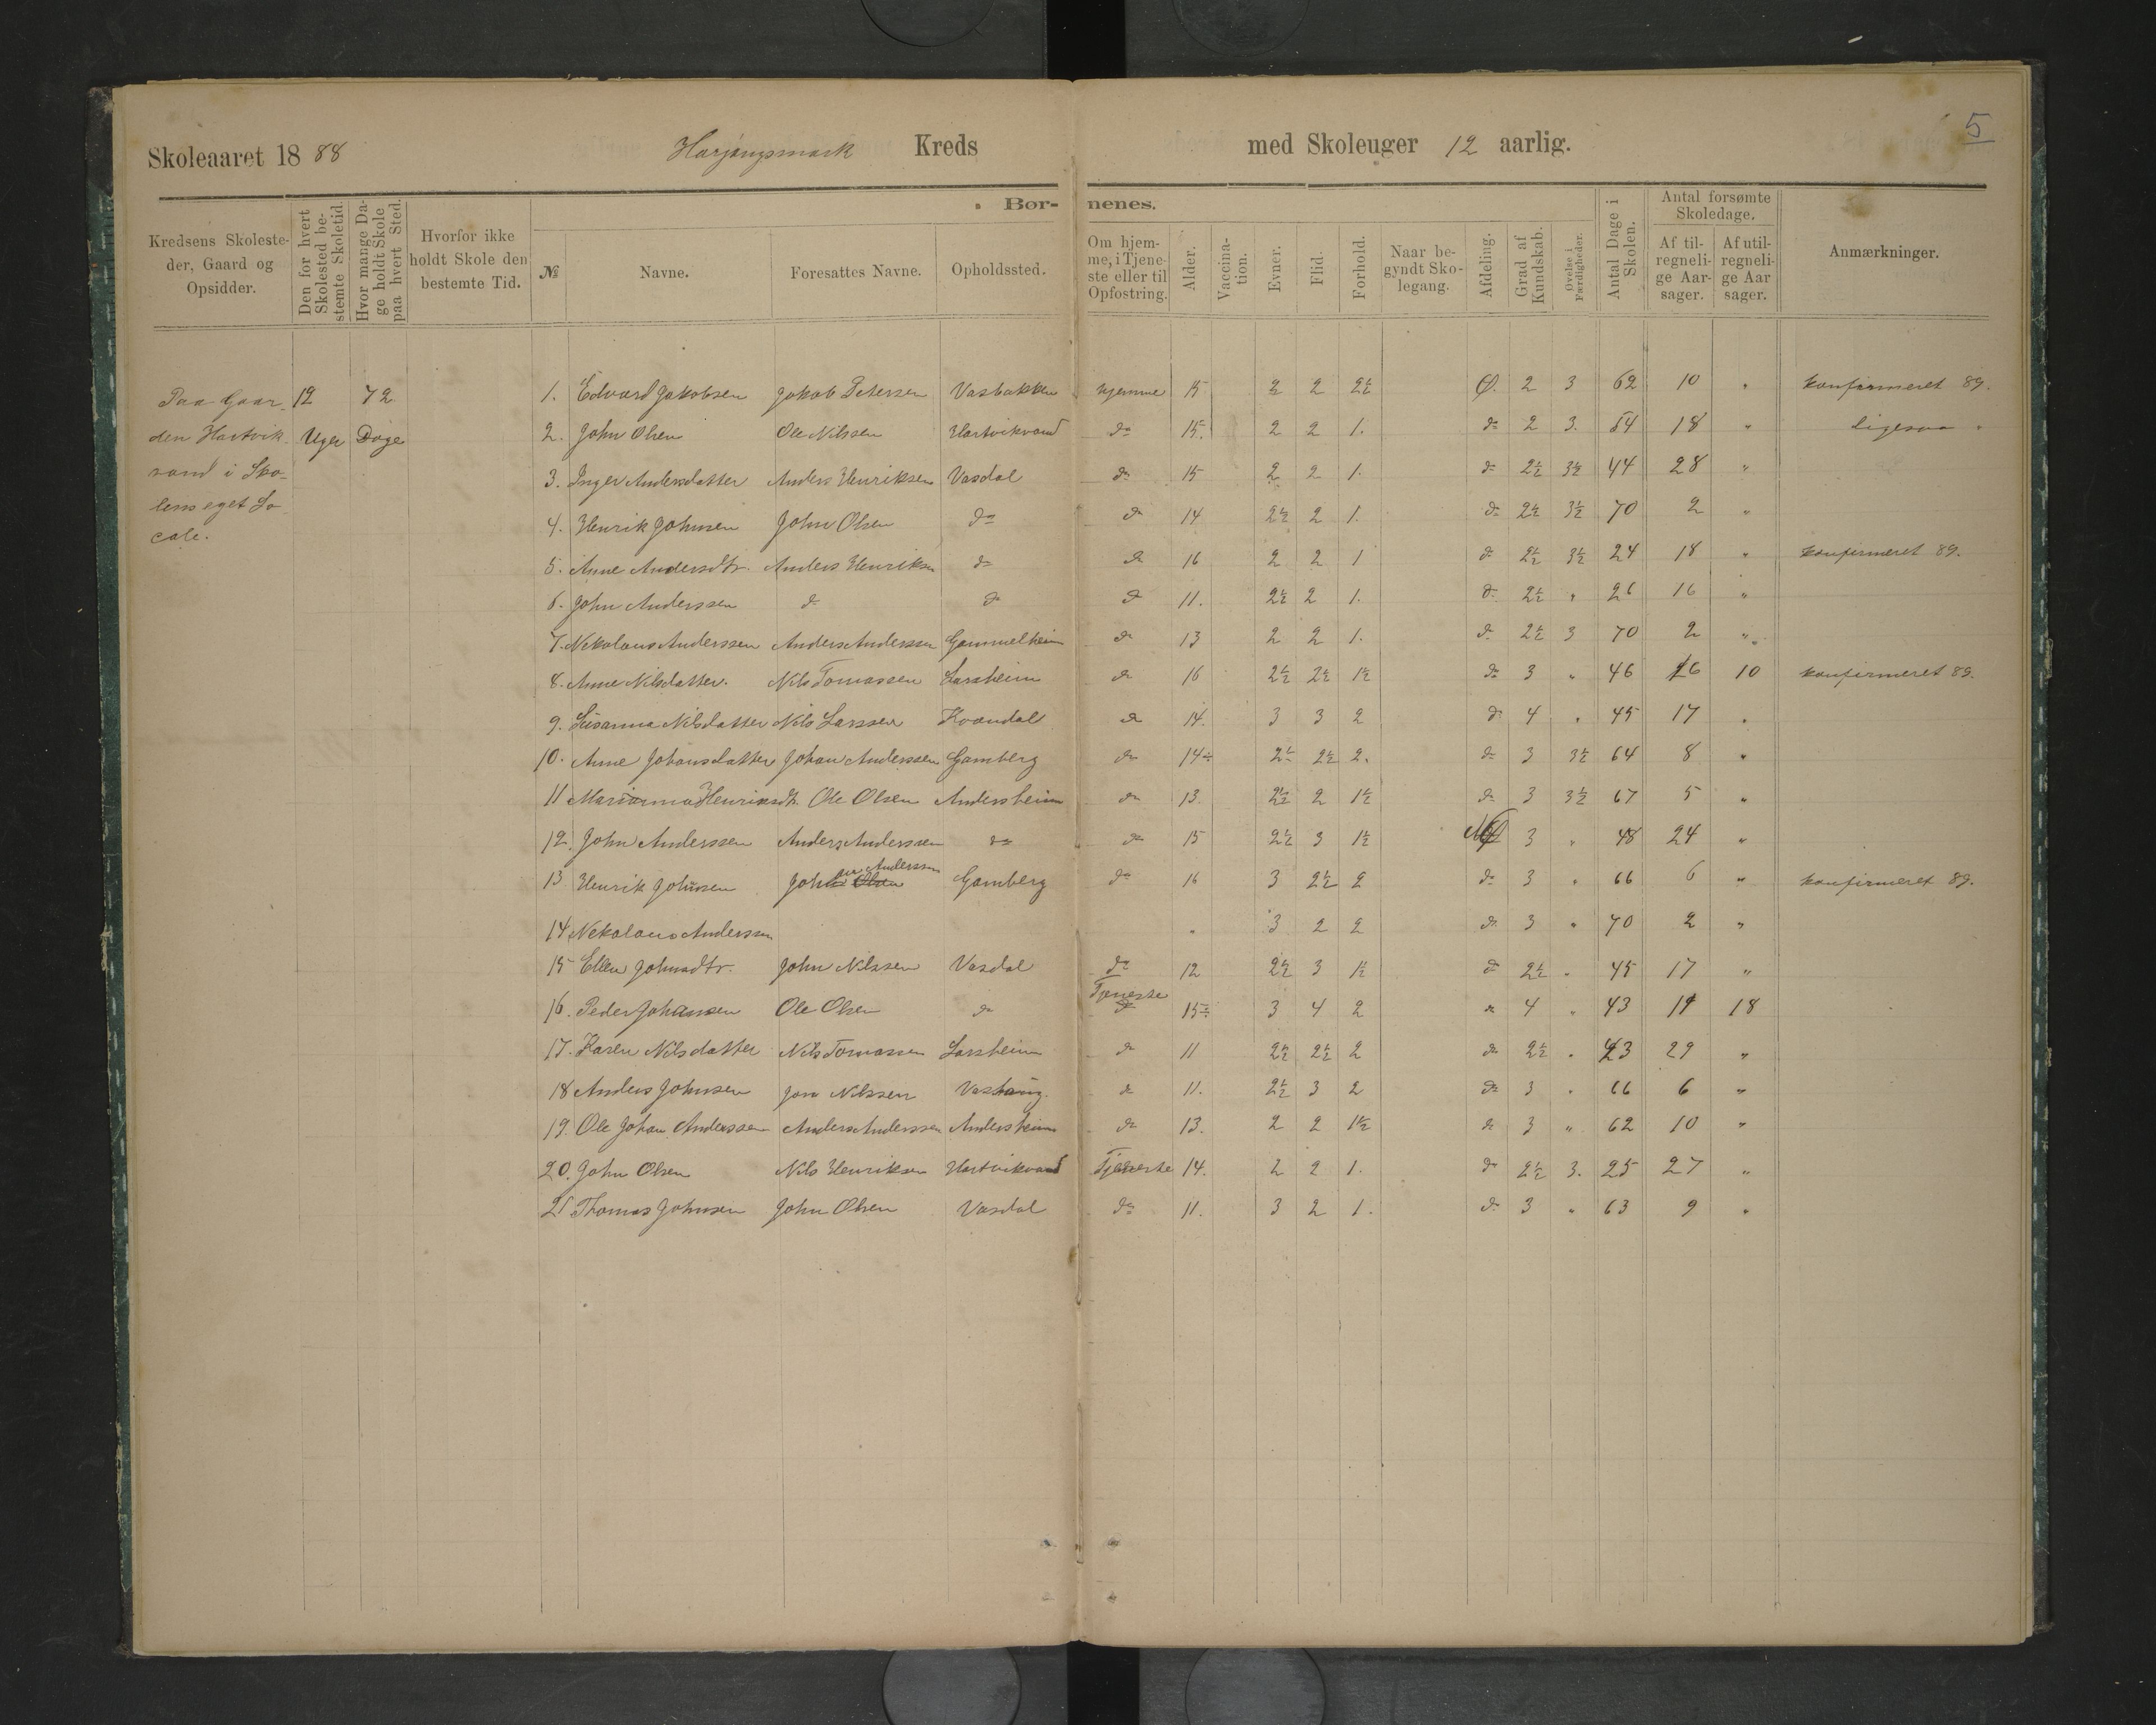 5
Skoleaaret 1888 Harjangsmark Kreds med Skoleuger 12 aarlig.
Bør- nenes.
Kredsens Skolesteder, Gaard og Opsidder.
Den for hvert Skolested bestemte Skoletid.
Hvor mange Dage holdt Skole paa hvert Sted.
Hvorfor ikke holdt Skole den bestemte Tid.
№
Navne.
Foresattes Navne.
Opholdssted.
Om hjemme, i Tjeneste eller til Opfostring.
Alder.
Vaccination.
Evner.
Flid.
Forhold.
Naar begyndt Skolegang.
Afdeling.
Grad af Kundskab.
Øvelse i Færdigheder.
Antal Dage i Skolen.
Antal forsømte Skoledage.
Af tilregnelige Aarsager.
Af utilregnelige Aarsager.
Anmærkninger.
Paa Gaar-
den Hartvik-
vand i Sko-
lens eget Lo-
cale.
12 Uger
72 Dage
1. Edvard Jakobsen Jakob Petersen Vasbakken hjemme 15 2 2 2½ Ø. 2 3 62 10 " konfirmeret 89.
2. John Olsen Ole Nilssen Hartvikvand do 15. 2 2 1. do 2 3. 54 18 " Ligesaa "
3. Inger Andersdatter Anders Henriksen Vasdal do 15 2 2 1. do 2½ 3½ 44 28 "
4. Henrik Johnsen John Olsen do do 14 2½ 2 1. do 2½ 3½ 70 2 "
5. Anne Andersdtr. Anders Henriksen do do 16 2 2 1 do 2½ 3½ 24 18 " konfirmeret 89.
6. John Anderssen do do do 11. 2½ 2 1. do 2½ " 26 16 "
7. Nekolaus Anderssen Anders Anderssen Gammelheim do 13 2 2 1. do 2½ 3 70 2 "
8. Anne Nilsdatter. Nils Tomassen Larsheim do 16 2½ 2½ 1½ do 3 " 46 16 10 konfirmeret 89.
9. Susanna Nilsdatter Nils Larssen Kvandal do 14. 3 3 2 do 4 " 45 17 "
10. Anne Johansdatter Johan Anderssen Gamberg do 14 2½ 2½ 2. do 3 3½ 64 8 "
11 Marianna Henriksdtr. Ole Olsen Andersheim do 13. 2½ 2 1½ do 3 3½ 67 5 "
12. John Anderssen Anders Anderssen do do 15 2½ 3 1½ 3 " 48 24 "
13 Henrik Johnsen John Olsen Anderssen Gamberg do 16 3 2½ 2 do 3 " 66 6 " konfirmeret 89.
14 Nekolaus Anderssen " 3 2 2 do 3 " 70 2 "
15 Ellen Johnsdtr. John Nilssen Vasdal do 12 2½ 3 1½ do 2½ " 45 17 "
16. Peder Johansen Ole Olsen do Tjeneste do 15 3 4 2 do 4 " 43 11 18
17. Karen Nilsdatter Nils Tomassen Larsheim do 11 2½ 2½ 2 do 2½ " 43 29 "
18 Anders Johnsen Jon Nilssen Vashaug. do 11. 2½ 3 2 do 3 " 66 6 "
19. Ole Johan Anderssen Anders Anderssen Andersheim do 13. 2 2 1½ do 3 " 62 10 "
20. John Olsen Nils Henriksen Hartvikvand Tjeneste 14. 2 2 1. do 2½ 3. 25 27 "
21 Thomas Johnsen John Olsen Vasdal do 11. 3 2 1. do 3 " 63 9 "